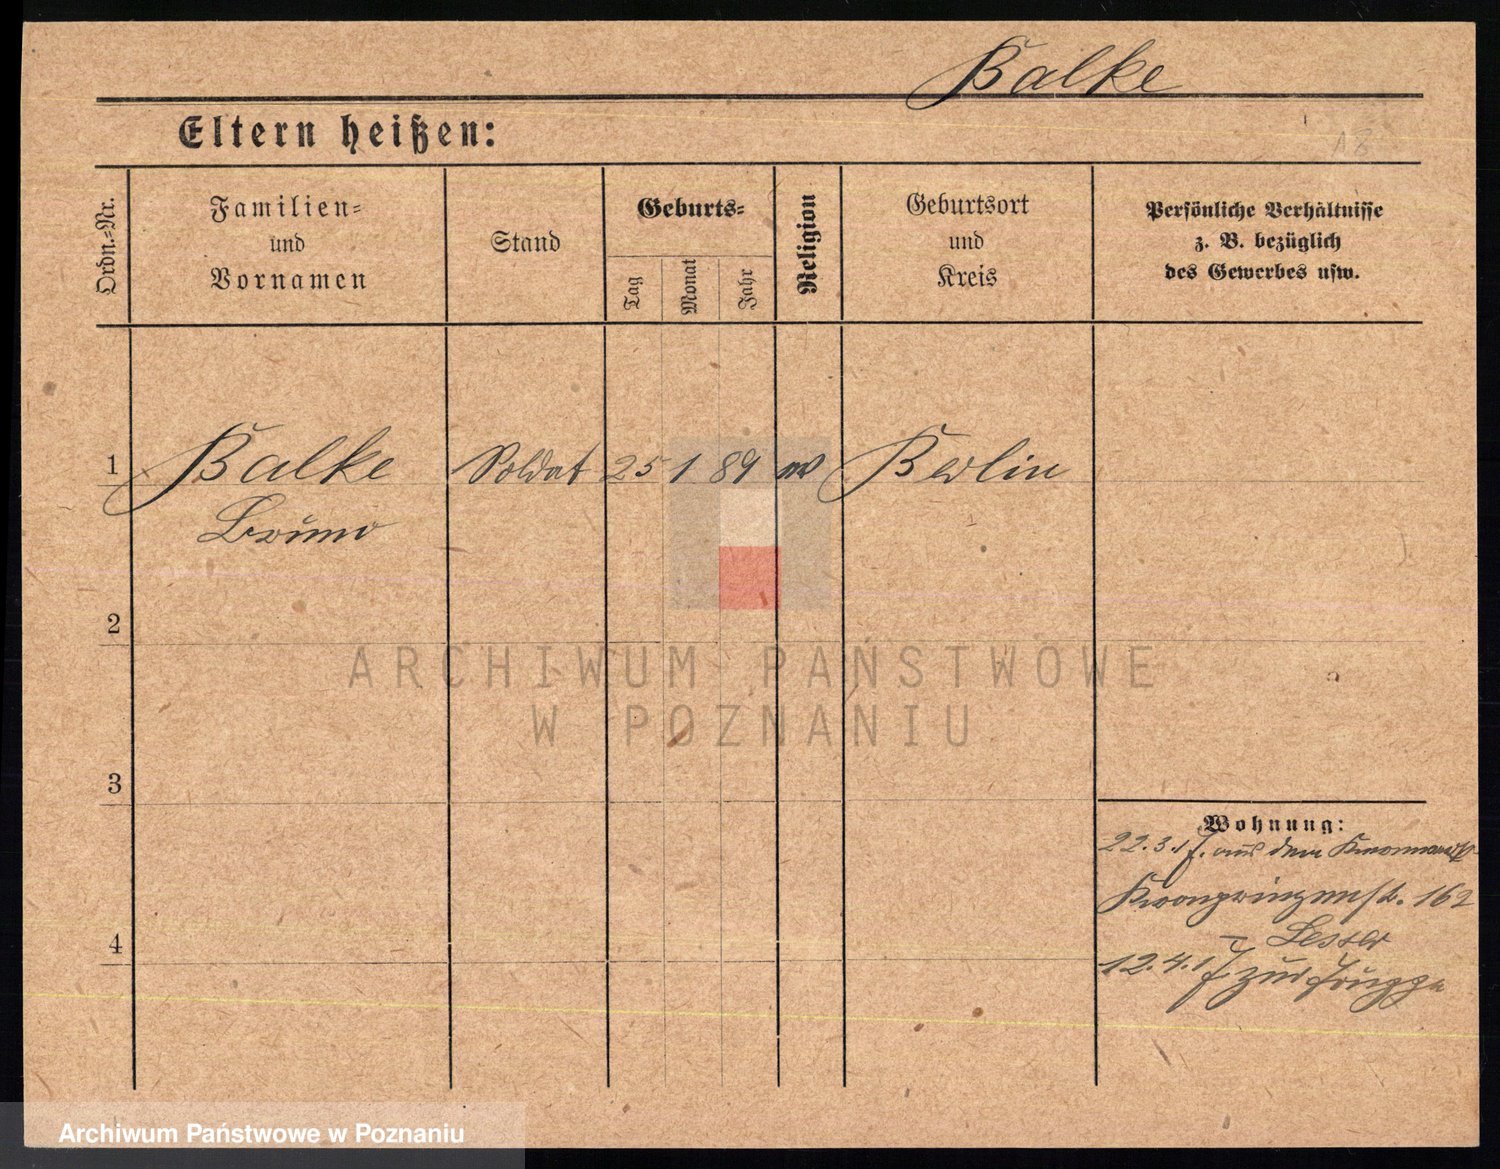 Balke
Eltern heißen:
18
Ordn.-Nr.
Familien-
und
Vornamen
Stand
Geburts-
Tag
Monat
Jahr
Religion
Geburtsort
und
Kreis
Persönliche Verhältnisse
z. B. bezüglich
des Gewerbes usw.
1 Balke Soldat 25 1 89 Berlin
Bruno
2
ARCHIWUM PAŃSTWOWE
W POZNANIU
3
Wohnung:
22.3.17. aus dem
Kronprinzenst. 162
4
– Lesser
12.4.17. zur Truppe
Archiwum Państwowe w Poznaniu